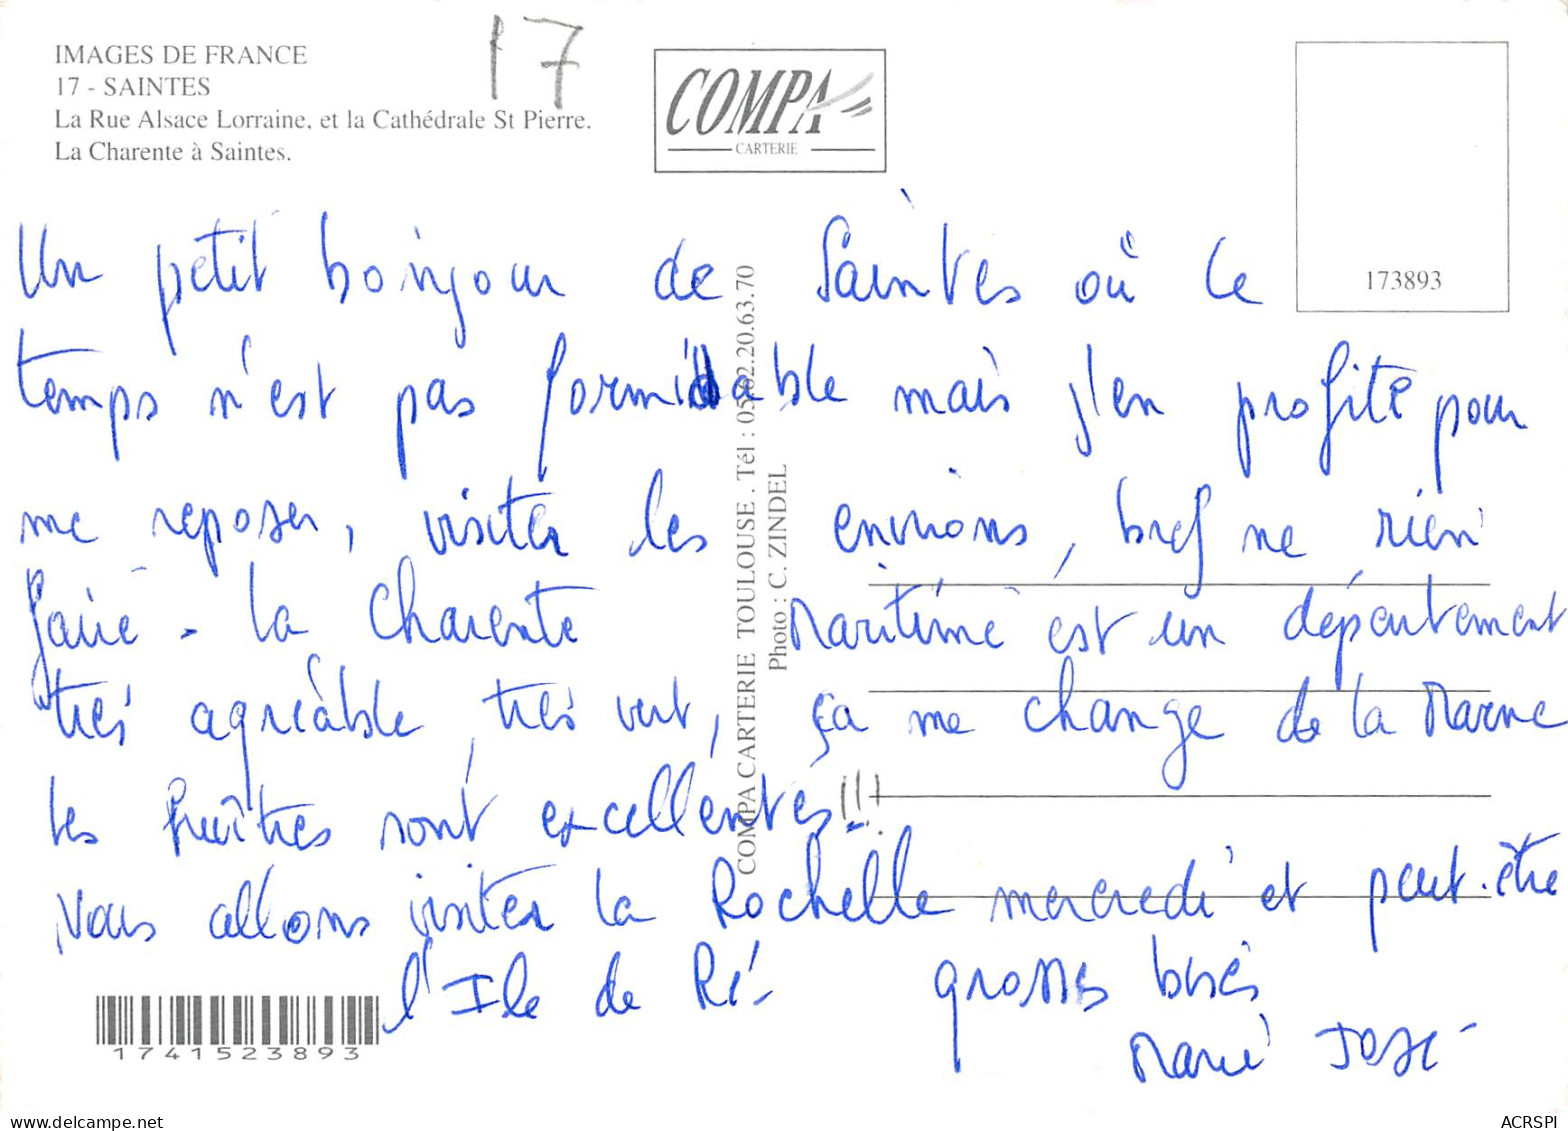 IMAGES DE FRANCE
17 - SAINTES
La Rue Alsace Lorraine, et la Cathédrale St Pierre.
La Charente à Saintes.
17
COMPA
CARTERIE
173893
Un petit bonjour de Saintes où le
temps n'est pas formidable mais j'en profite pour
me reposer, visiter les environs, bref ne rien
faire - la Charente Maritime est un département
très agréable, très vert, ça me change de la Marne
les huîtres sont excellentes!!!
Nous allons visiter la Rochelle mercredi et peut-être
l'Ile de Ré -
grosses bises
Marie José
COMPA CARTERIE TOULOUSE. Tél : 05.62.20.63.70
Photo : C. ZINDEL
1741523893
www.delcampe.net
ACRSPI